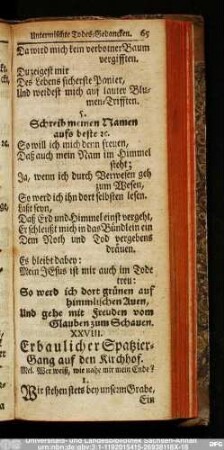 Untermischte Todes-Gedancken. 65
Da wird mich kein verbotner Baum
vergifften.
Du zeigest mir
Des Lebens sicherste Panier,
Und weidest mich auf lauter Blu-
men-Trifften.
5.
Schreib meinen Namen
aufs beste ꝛc.
So will ich mich denn freuen,
Daß auch mein Nam im Himmel
steht;
Ja, wenn ich durch Verwesen geh
zum Wesen,
So werd ich ihn dort selbsten lesen.
Laßt seyn,
Daß Erd und Himmel einst vergeht,
Er schleußt mich in das Bündlein ein
Dem Noth und Tod vergebens
dräuen.
Es bleibt dabey:
Mein JEsus ist mir auch im Tode
treu:
So werd ich dort grünen auf
himmlischen Auen,
Und gehe mit Freuden vom
Glauben zum Schauen.
XXVIII.
Erbaulicher Spatzier-
Gang auf den Kirchhof.
Mel. Wer weiß, wie nahe mir mein Ende?
1.
Wir stehen stets bey unserm Grabe,
Ein
Universitäts- und Landesbibliothek Sachsen-Anhalt
urn:nbn:de:gbv:3:1-1192015415-269398116X-18
DFG